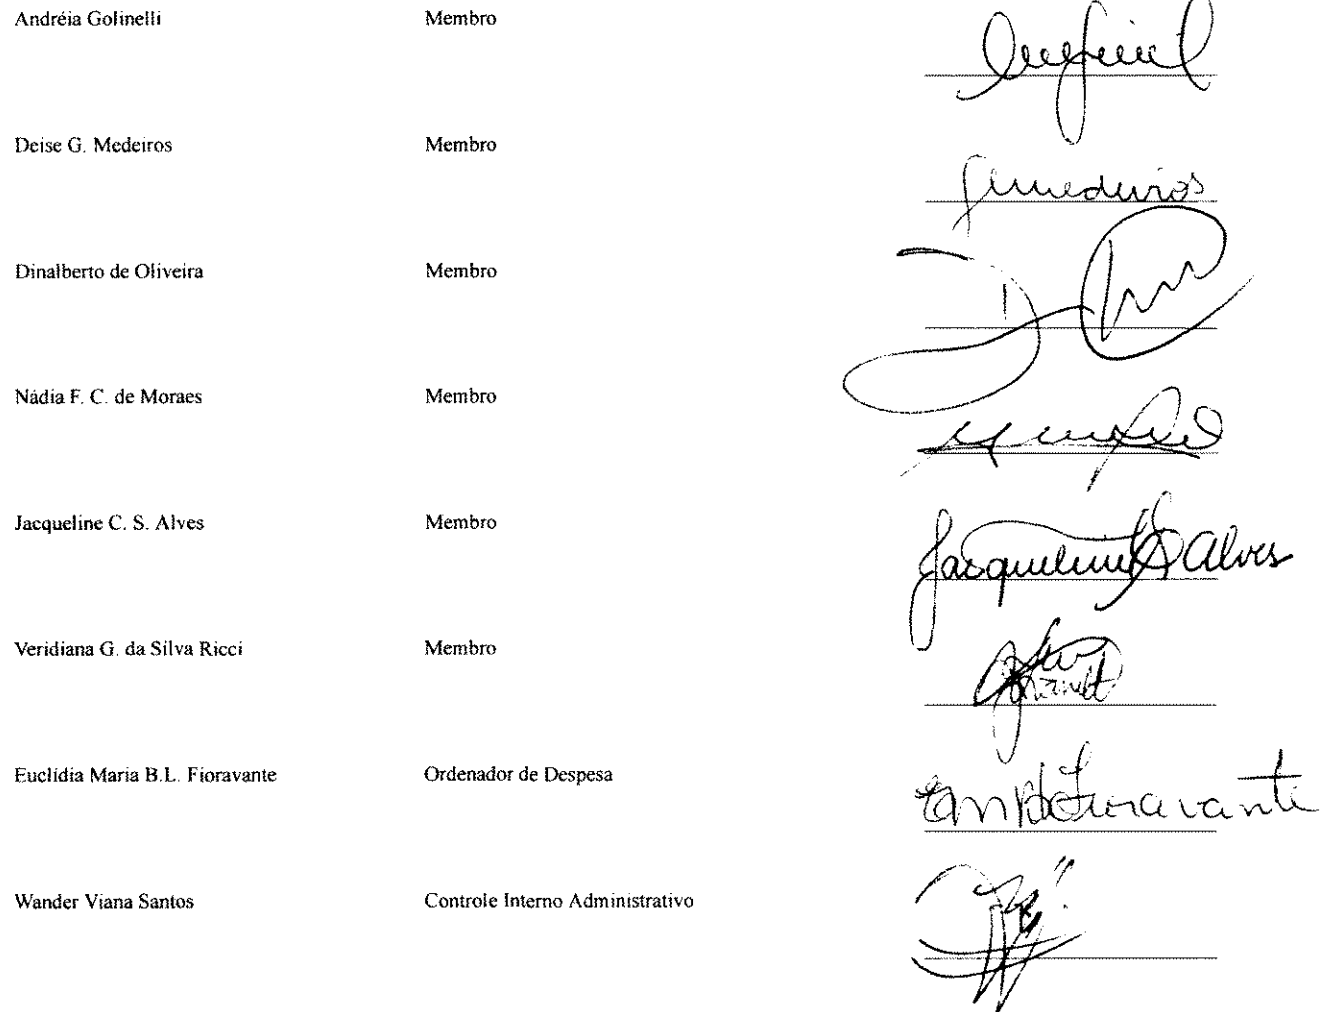 Andréia Golinelli Membro
Deise G. Medeiros Membro
Dinalberto de Oliveira Membro
Nádia F. C. de Moraes Membro
Jacqueline C. S. Alves Membro Jacqueline Alves
Veridiana G. da Silva Ricci Membro
Euclídia Maria B.L. Fioravante Ordenador de Despesa
Wander Viana Santos Controle Interno Administrativo